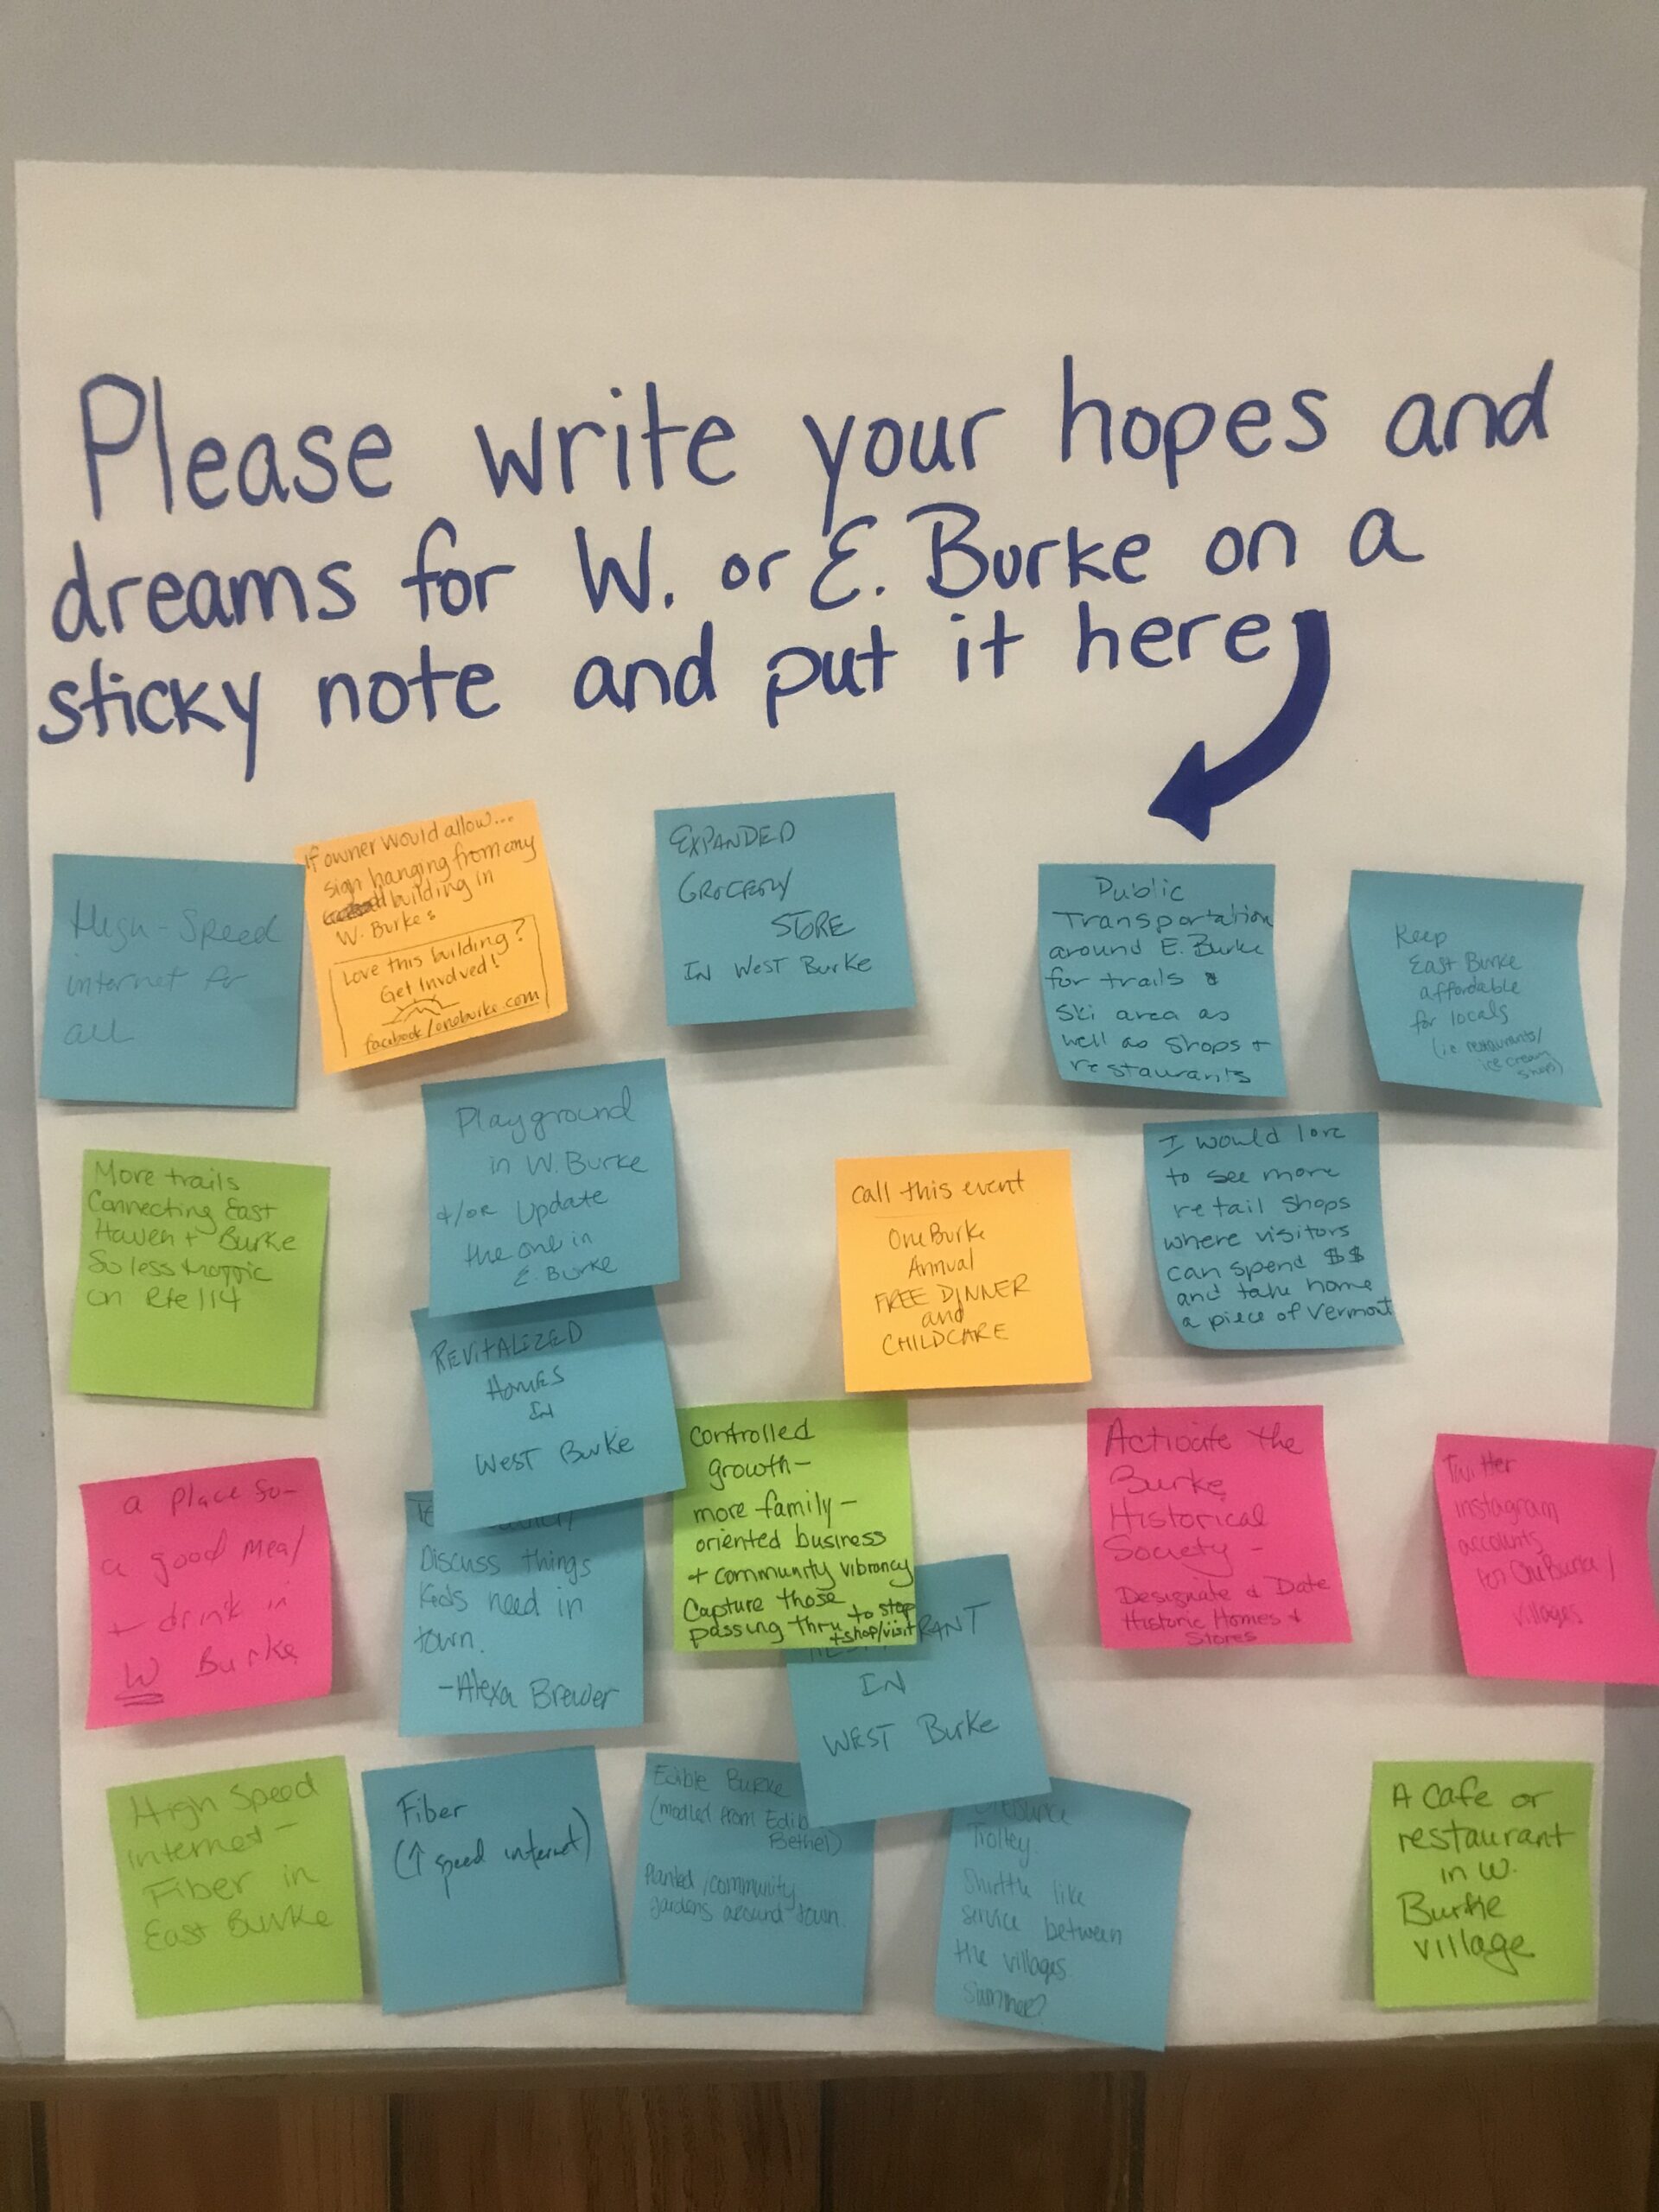 Please write your hopes and
dreams for W. or E. Burke on a
sticky note and put it here
High-Speed
internet for
all
If owner would allow...
sign hanging from any
building in
W. Burke:
Love this building?
Get Involved!
facebook/oneburke.com
EXPANDED
GROCERY
STORE
IN WEST Burke
Public
Transportation
around E. Burke
for trails &
Ski area as
well as shops +
restaurants
Keep
East Burke
affordable
for locals
(ie restaurants/
ice cream
shops)
More trails
Connecting East
Haven + Burke
So less traffic
on Rte 114
Playground
in W. Burke
+/or Update
the one in
E. Burke
Call this event
OneBurke
Annual
FREE DINNER
and
CHILDCARE
I would love
to see more
retail shops
where visitors
can spend $$
and take home
a piece of Vermont
REVITALIZED
HOMES
IN
WEST Burke
a place for
a good meal
+ drink in
W Burke
Discuss things
Kids need in
town.
-Alexa Brewer
Controlled
growth-
more family-
oriented business
+ community vibrancy
Capture those
passing thru to stop
+shop/visit
IN
WEST Burke
Activate the
Burke
Historical
Society -
Designate & Date
Historic Homes +
Stores
Twitter
instagram
accounts
for OneBurke/
villages
High Speed
internet-
Fiber in
East Burke
Fiber
(↑ speed internet)
Edible Burke
(modled from Edib
Bethel)
Planted/community
gardens around town
Trolley
Shuttle like
service between
the villages
Summer?
A Cafe or
restaurant
in W.
Burke
village